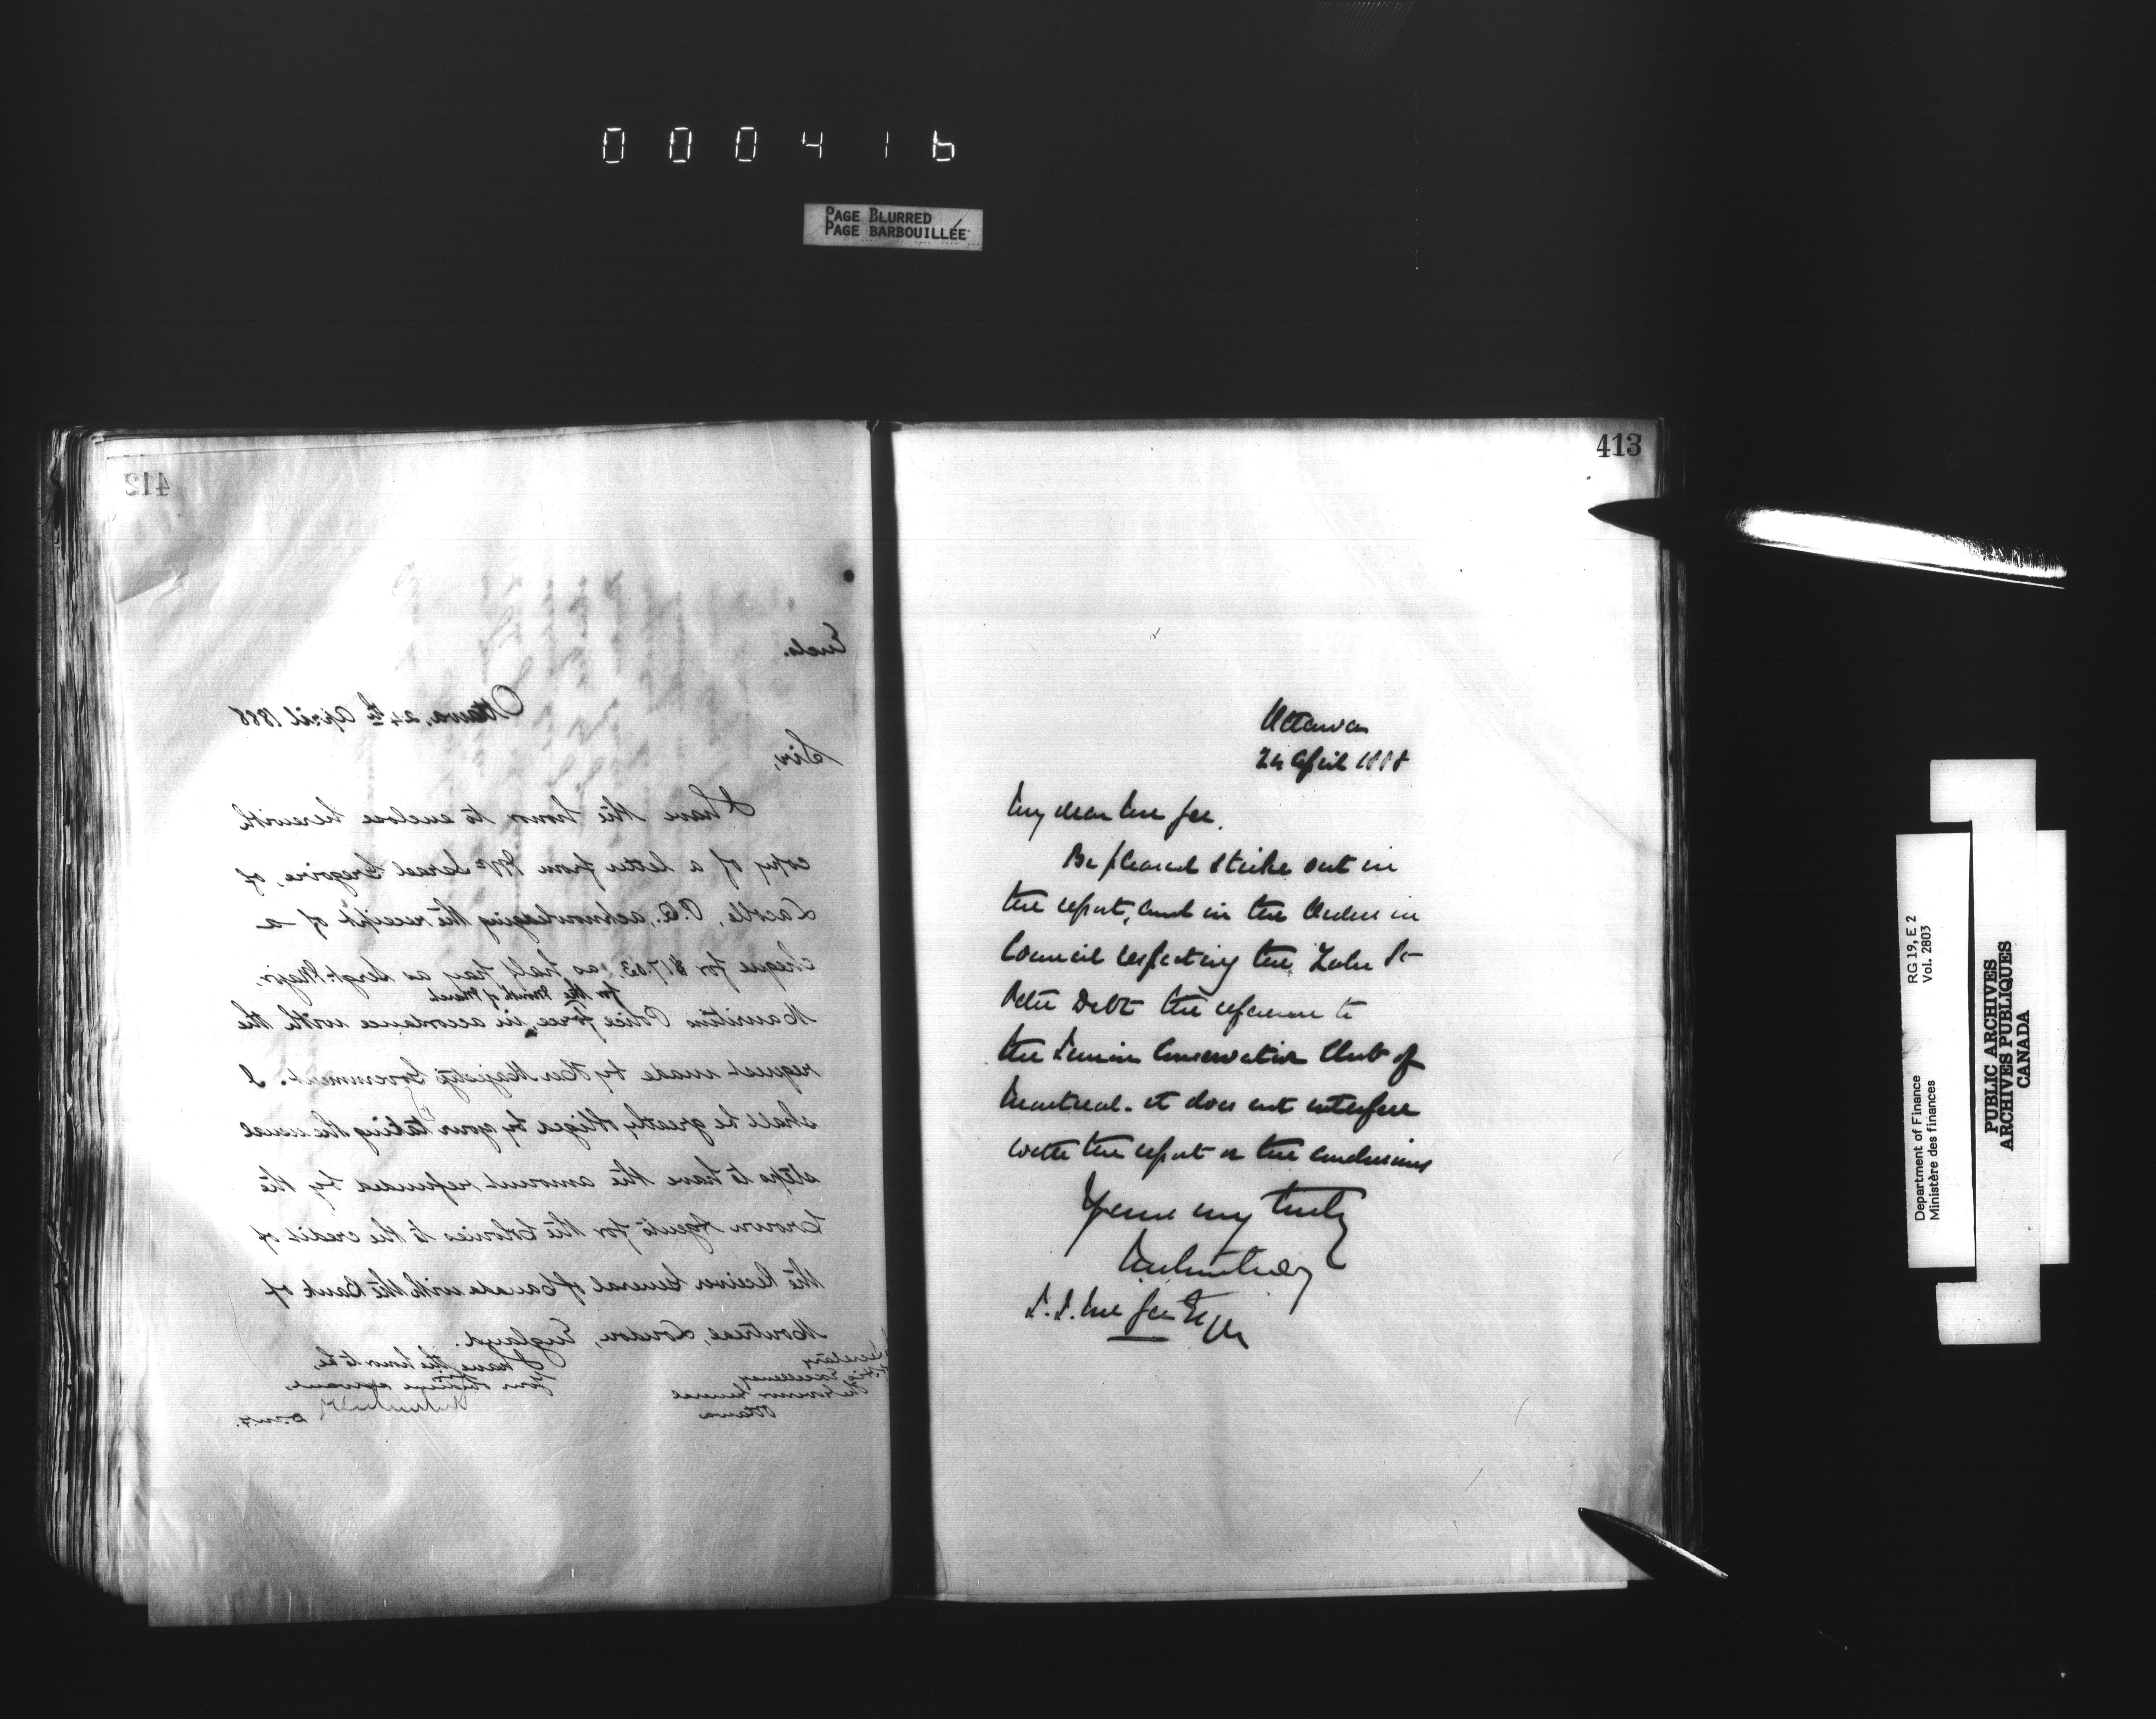 000416
PAGE BLURRED
PAGE BARBOUILLÉE
412
Encls.
Ottawa, 24th April 1888
Sir,
I have the honor to enclose herewith
copy of a letter from Mr Israel Gregoire, of
Lacolle, P.Q., acknowledging the receipt of a
cheque for $17.03, as half pay as Sergt. Major,
for the month of March
Mauritius Police force, in accordance with the
request made by Her Majesty's Government. I
shall be greatly obliged by your taking the usual
steps to have the amount refunded by the
Crown Agents for the Colonies to the credit of
the Receiver General of Canada with the Bank of
Montreal, London, England.
I have the honor to be,
Your obedient servant,
D.M.F.
Secretary
His Excellency
The Governor General
Ottawa
413
Ottawa
24 April 1888
My dear McGee.
Be pleased strike out in
the report, and in the Order in
Council respecting the Lake St
Peter Debt the reference to
the Junior Conservative Club of
Montreal. it does not interfere
with the report or the conclusions
Yours very truly
J. J. McGee Esqr
RG 19, E 2
Vol. 2803
Department of Finance
Ministère des finances
PUBLIC ARCHIVES
ARCHIVES PUBLIQUES
CANADA